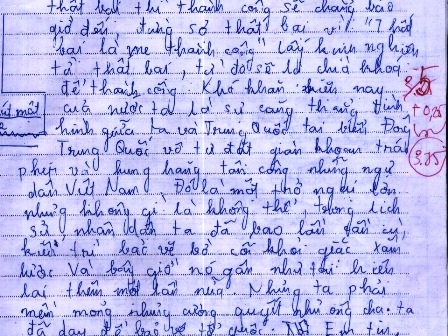 thất bại thì thành công sẽ chẳng bao
giờ đến, đừng sợ thất bại vì "Thất
bại là mẹ thành công" lấy kinh nghiệm
từ thất bại, từ đó sẽ là chìa khoá
để thành công. Khó khăn hiện nay
của nước ta là sự căng thẳng tình
hình giữa ta và Trung Quốc tại biển Đông
Trung Quốc vô tư đặt giàn khoan trái
phép và hung hăng tấn công những ngư
dân Việt Nam. Đó là một thở ngại lớn
nhưng không gì là không thể, trong lịch
sử nhân dân ta đã bao lần
kiên trì bảo vệ bờ cõi khỏi giặc xâm
lược và bây giờ nó gần như tái hiện
lại thêm một lần nữa. Nhưng ta phải
mềm mỏng nhưng cương quyết như ông cha ta
đã dạy để bảo vệ tổ quốc.
út mất
+0,25